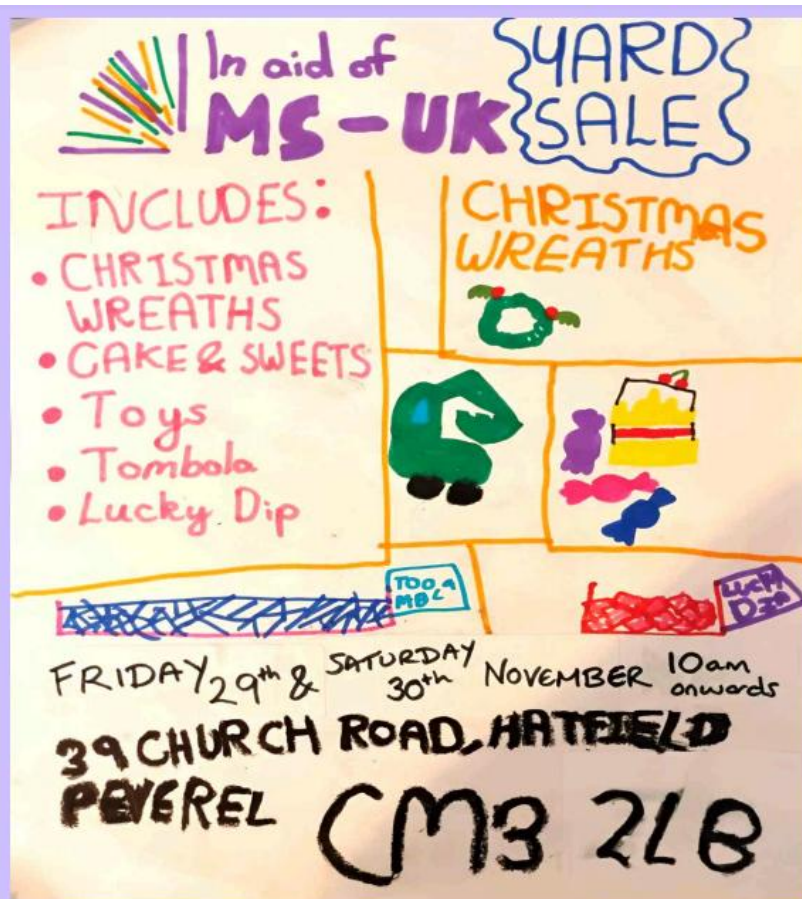 In aid of
MS-UK
YARD
SALE
INCLUDES:
• CHRISTMAS
WREATHS
• CAKE & SWEETS
• Toys
• Tombola
• Lucky Dip
CHRISTMAS
WREATHS
LUCKY
DIP
FRIDAY 29th & SATURDAY 30th NOVEMBER 10am onwards
39 CHURCH ROAD, HATFIELD
PEVEREL CM3 2LB